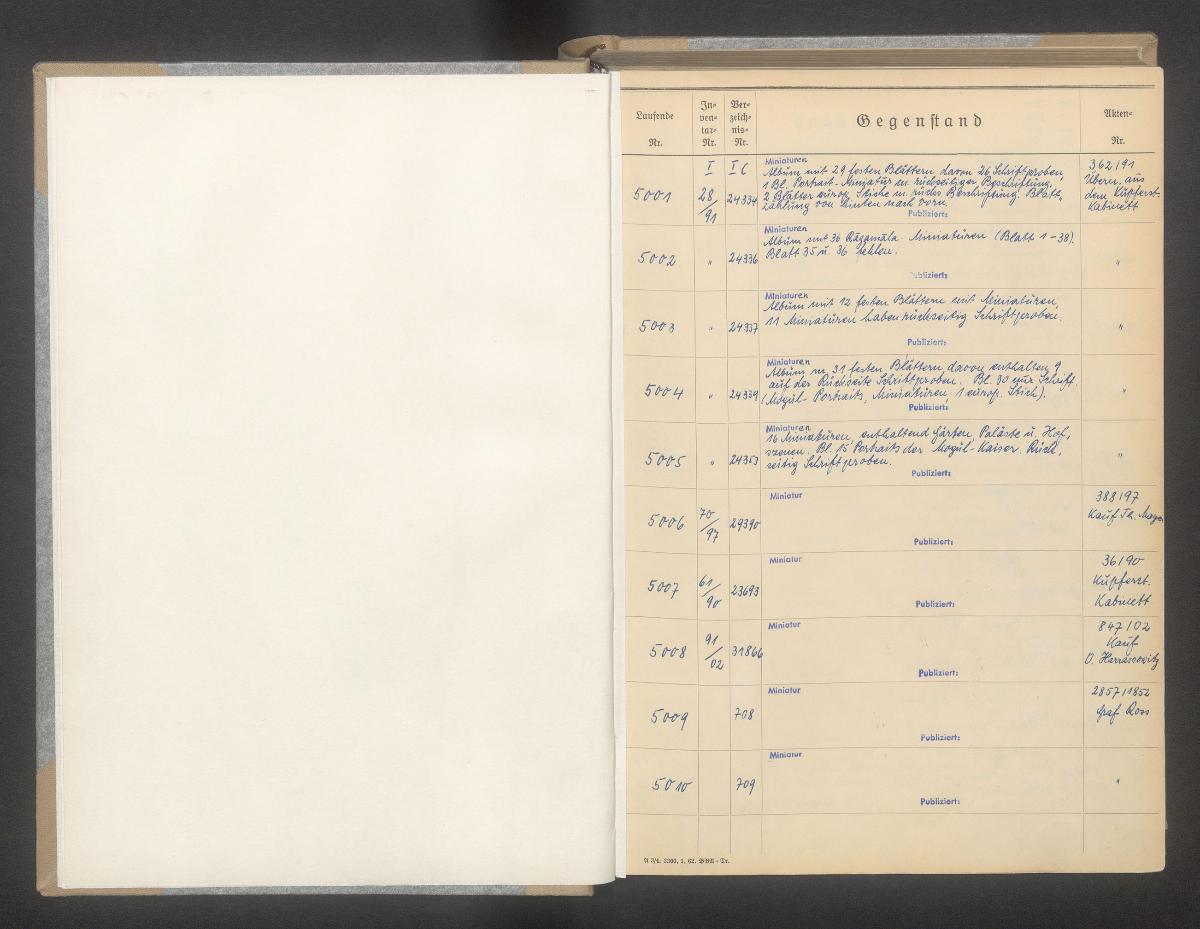 Laufende Nr.
In=ven=tar=Nr.
Ver=zeich=nis=Nr.
Gegenstand
Akten-Nr.
5001
I 28/91
I C 24334
Miniaturen
Album mit 29 festen Blättern davon 26 Schriftproben,
1 Bl. Portrait-Miniatur m. rückseitiger Beschriftung,
2 Blätter europ. Stiche m. rücks. Beschriftung. Blatt-
zählung von hinten nach vorn.
Publiziert:
362/91
Übern. aus
dem Kupferst.-
Kabinett
5002
"
24336
Miniaturen
Album mit 36 Rāgamāla-Miniaturen (Blatt 1-38).
Blatt 35 u. 36 fehlen.
Publiziert:
"
5003
"
24337
Miniaturen
Album mit 12 festen Blättern mit Miniaturen,
11 Miniaturen haben rückseitig Schriftproben.
Publiziert:
"
5004
"
24339
Miniaturen
Album m. 31 festen Blättern davon enthalten 9
auf der Rückseite Schriftproben. Bl. 30 nur Schrift.
(Mogul-Portraits, Miniaturen, 1 europ. Stich).
Publiziert:
"
5005
"
24353
Miniaturen
16 Miniaturen, enthaltend Gärten, Paläste u. Hof-
szenen. Bl. 15 Portraits der Mogul-Kaiser. Rück-
seitig Schriftproben.
Publiziert:
"
5006
70/97
29390
Miniatur
Publiziert:
388/97
Kauf Th.
5007
61/90
23693
Miniatur
Publiziert:
36/90
Kupferst.
Kabinett
5008
91/02
31866
Miniatur
Publiziert:
847/02
Kauf
O. Harrassowitz
5009
708
Miniatur
Publiziert:
2857/1852
Graf Ross
5010
709
Miniatur
Publiziert:
"